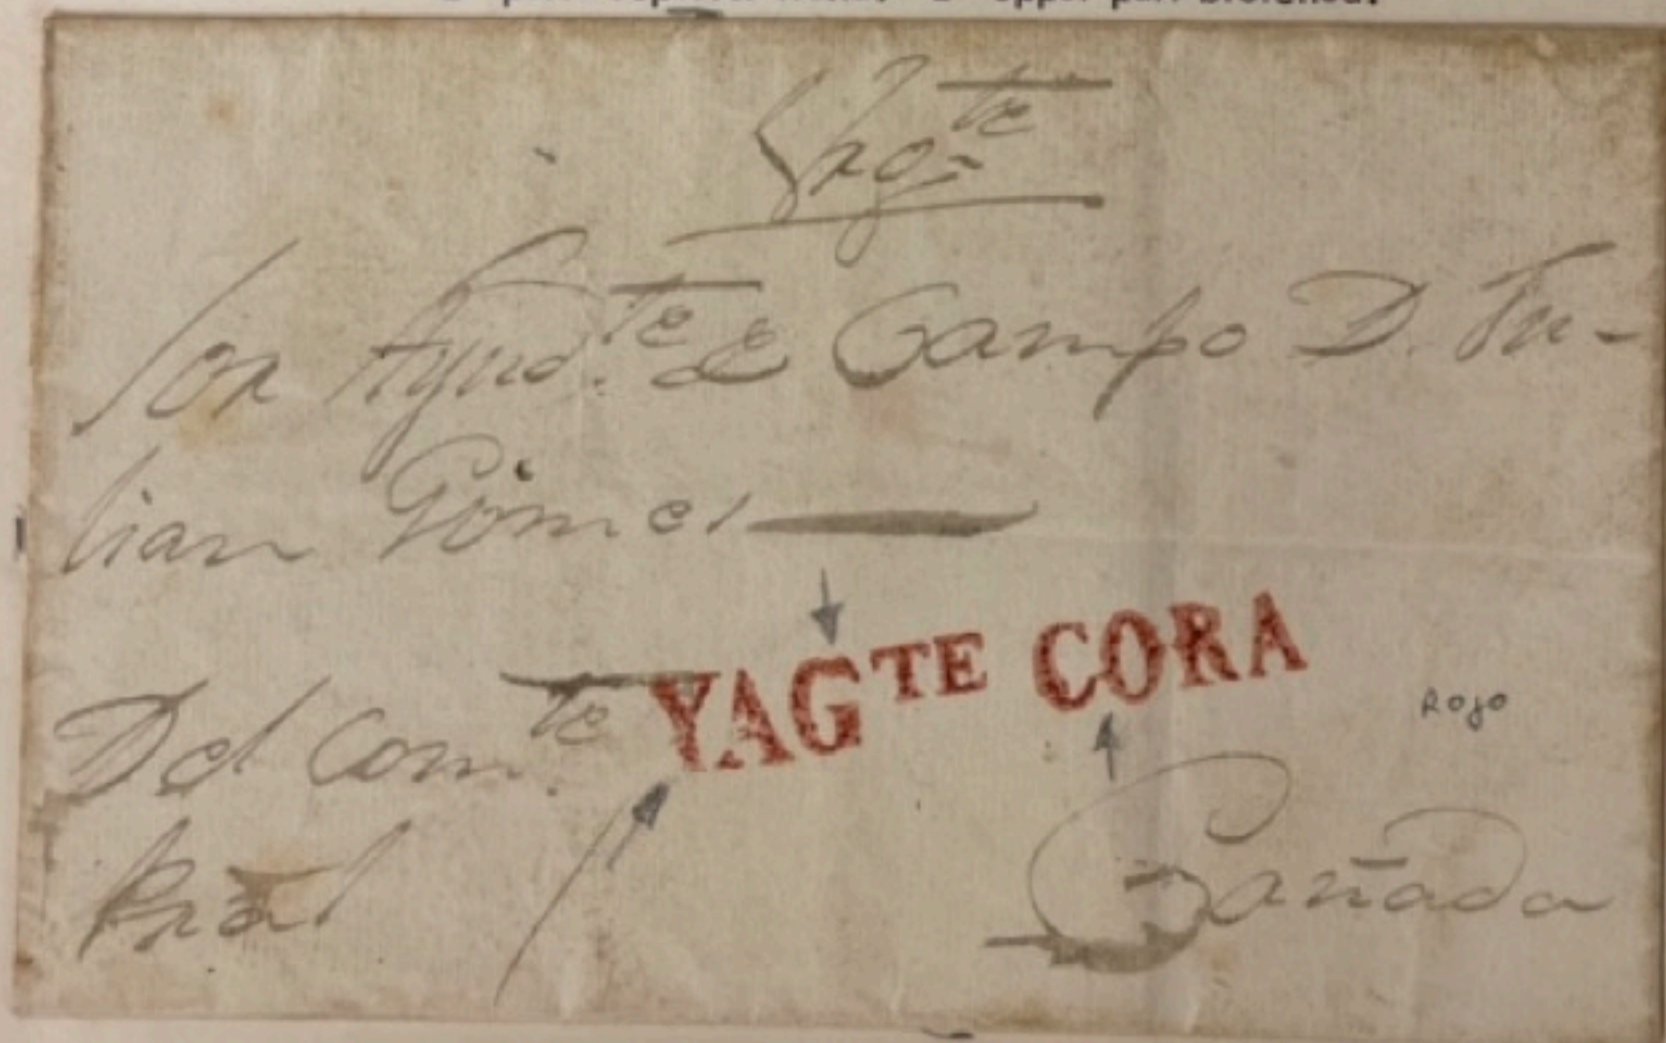 Yag.te
Sor Ayud.te de Campo D. Ju-
lian Gomes
YAGTE CORA
Rojo
Del Com.te
Pral
Cañada